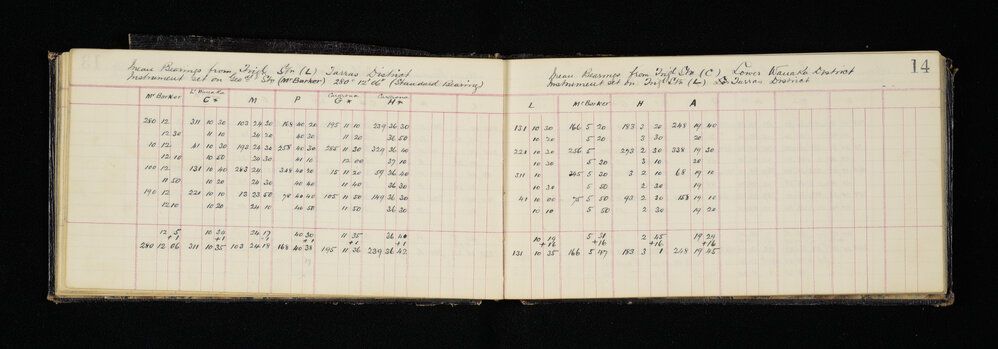 Mean Bearings from Trigl Stn (L) Tarras District
Instrument set on Geod Stn (McBarker) 280° 12' 06" (Standard Bearing)
McBarker L. Wanaka C * M P G * H *
280 12 311 10 30 103 24 30 168 40 20 195 11 10 239 36 30
12 30 11 10 24 20 40 30 11 20 36 50
10 12 41 10 30 193 24 30 258 40 30 285 11 30 329 36 40
12 10 10 50 24 30 41 10 12 00 37 10
100 12 131 10 40 283 24 348 40 20 15 11 20 59 36 40
11 50 10 20 24 30 40 40 11 40 36 30
190 12 221 10 10 13 23 50 78 40 40 105 11 50 149 36 30
12 10 10 20 24 10 40 50 11 50 36 30
12 5 10 34 24 17 40 30 11 35 36 40
+1 +1 +1 +1 +1
280 12 06 311 10 35 103 24 18 168 40 38 195 11 36 239 36 42
14
Mean Bearings from Trigl Stn (C) Lower Wanaka District
Instrument set on Trigl Stn (L) Tarras District
L McBarker H A
131 10 30 166 5 20 183 3 20 248 19 40
10 20 5 20 3 30 20
221 10 30 256 5 273 2 30 338 19 30
10 30 5 30 3 10 20
311 10 345 5 30 3 2 10 68 19 10
10 30 5 50 2 30 19
41 10 00 75 5 50 93 2 30 158 19 10
10 10 5 50 2 30 19 20
10 19 5 31 2 45 19 29
+16 +16 +16 +16
131 10 35 166 5 47 183 3 1 248 19 45